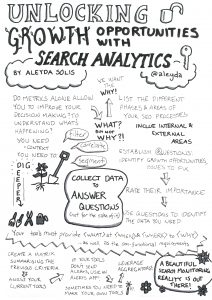 UNLOCKING
GROWTH OPPORTUNITIES
WITH
SEARCH ANALYTICS
BY ALEYDA SOLIS
@aleyda
WE WANT
THE
WHY!
DO METRICS ALONE ALLOW
YOU TO IMPROVE YOUR
DECISION MAKING? TO
UNDERSTAND WHAT'S
HAPPENING?
YOU NEED
CONTEXT
YOU NEED TO
DIG
DEEPER
WHAT?
BUT NOT
WHY?!
Filter
Correlate
Segment
LIST THE DIFFERENT
PHASES & AREAS OF
YOUR SEO PROCESSES
INCLUDE INTERNAL &
EXTERNAL
AREAS
ESTABLISH QUESTIONS:
IDENTIFY GROWTH OPPORTUNITIES,
ISSUES TO FIX
COLLECT DATA
TO
ANSWER
QUESTIONS
(not for the sake of it)
RATE THEIR IMPORTANCE
USE QUESTIONS TO IDENTIFY
THE DATA YOU USE
Your tools must provide
as well as the non-functional requirements
CREATE A MATRIX
SUMMARISING THE
PREVIOUS CRITERIA
ASSESS YOUR
CURRENT TOOLS
IF YOUR TOOLS
DON'T HAVE
ALERTS, USE AN
ALERTS APP
SOMETIMES YOU NEED TO
MAKE YOUR OWN TOOLS
LEVERAGE
SEGMENTATION
A BEAUTIFUL
SEARCH MONITORING
REALITY IS OUT
THERE!